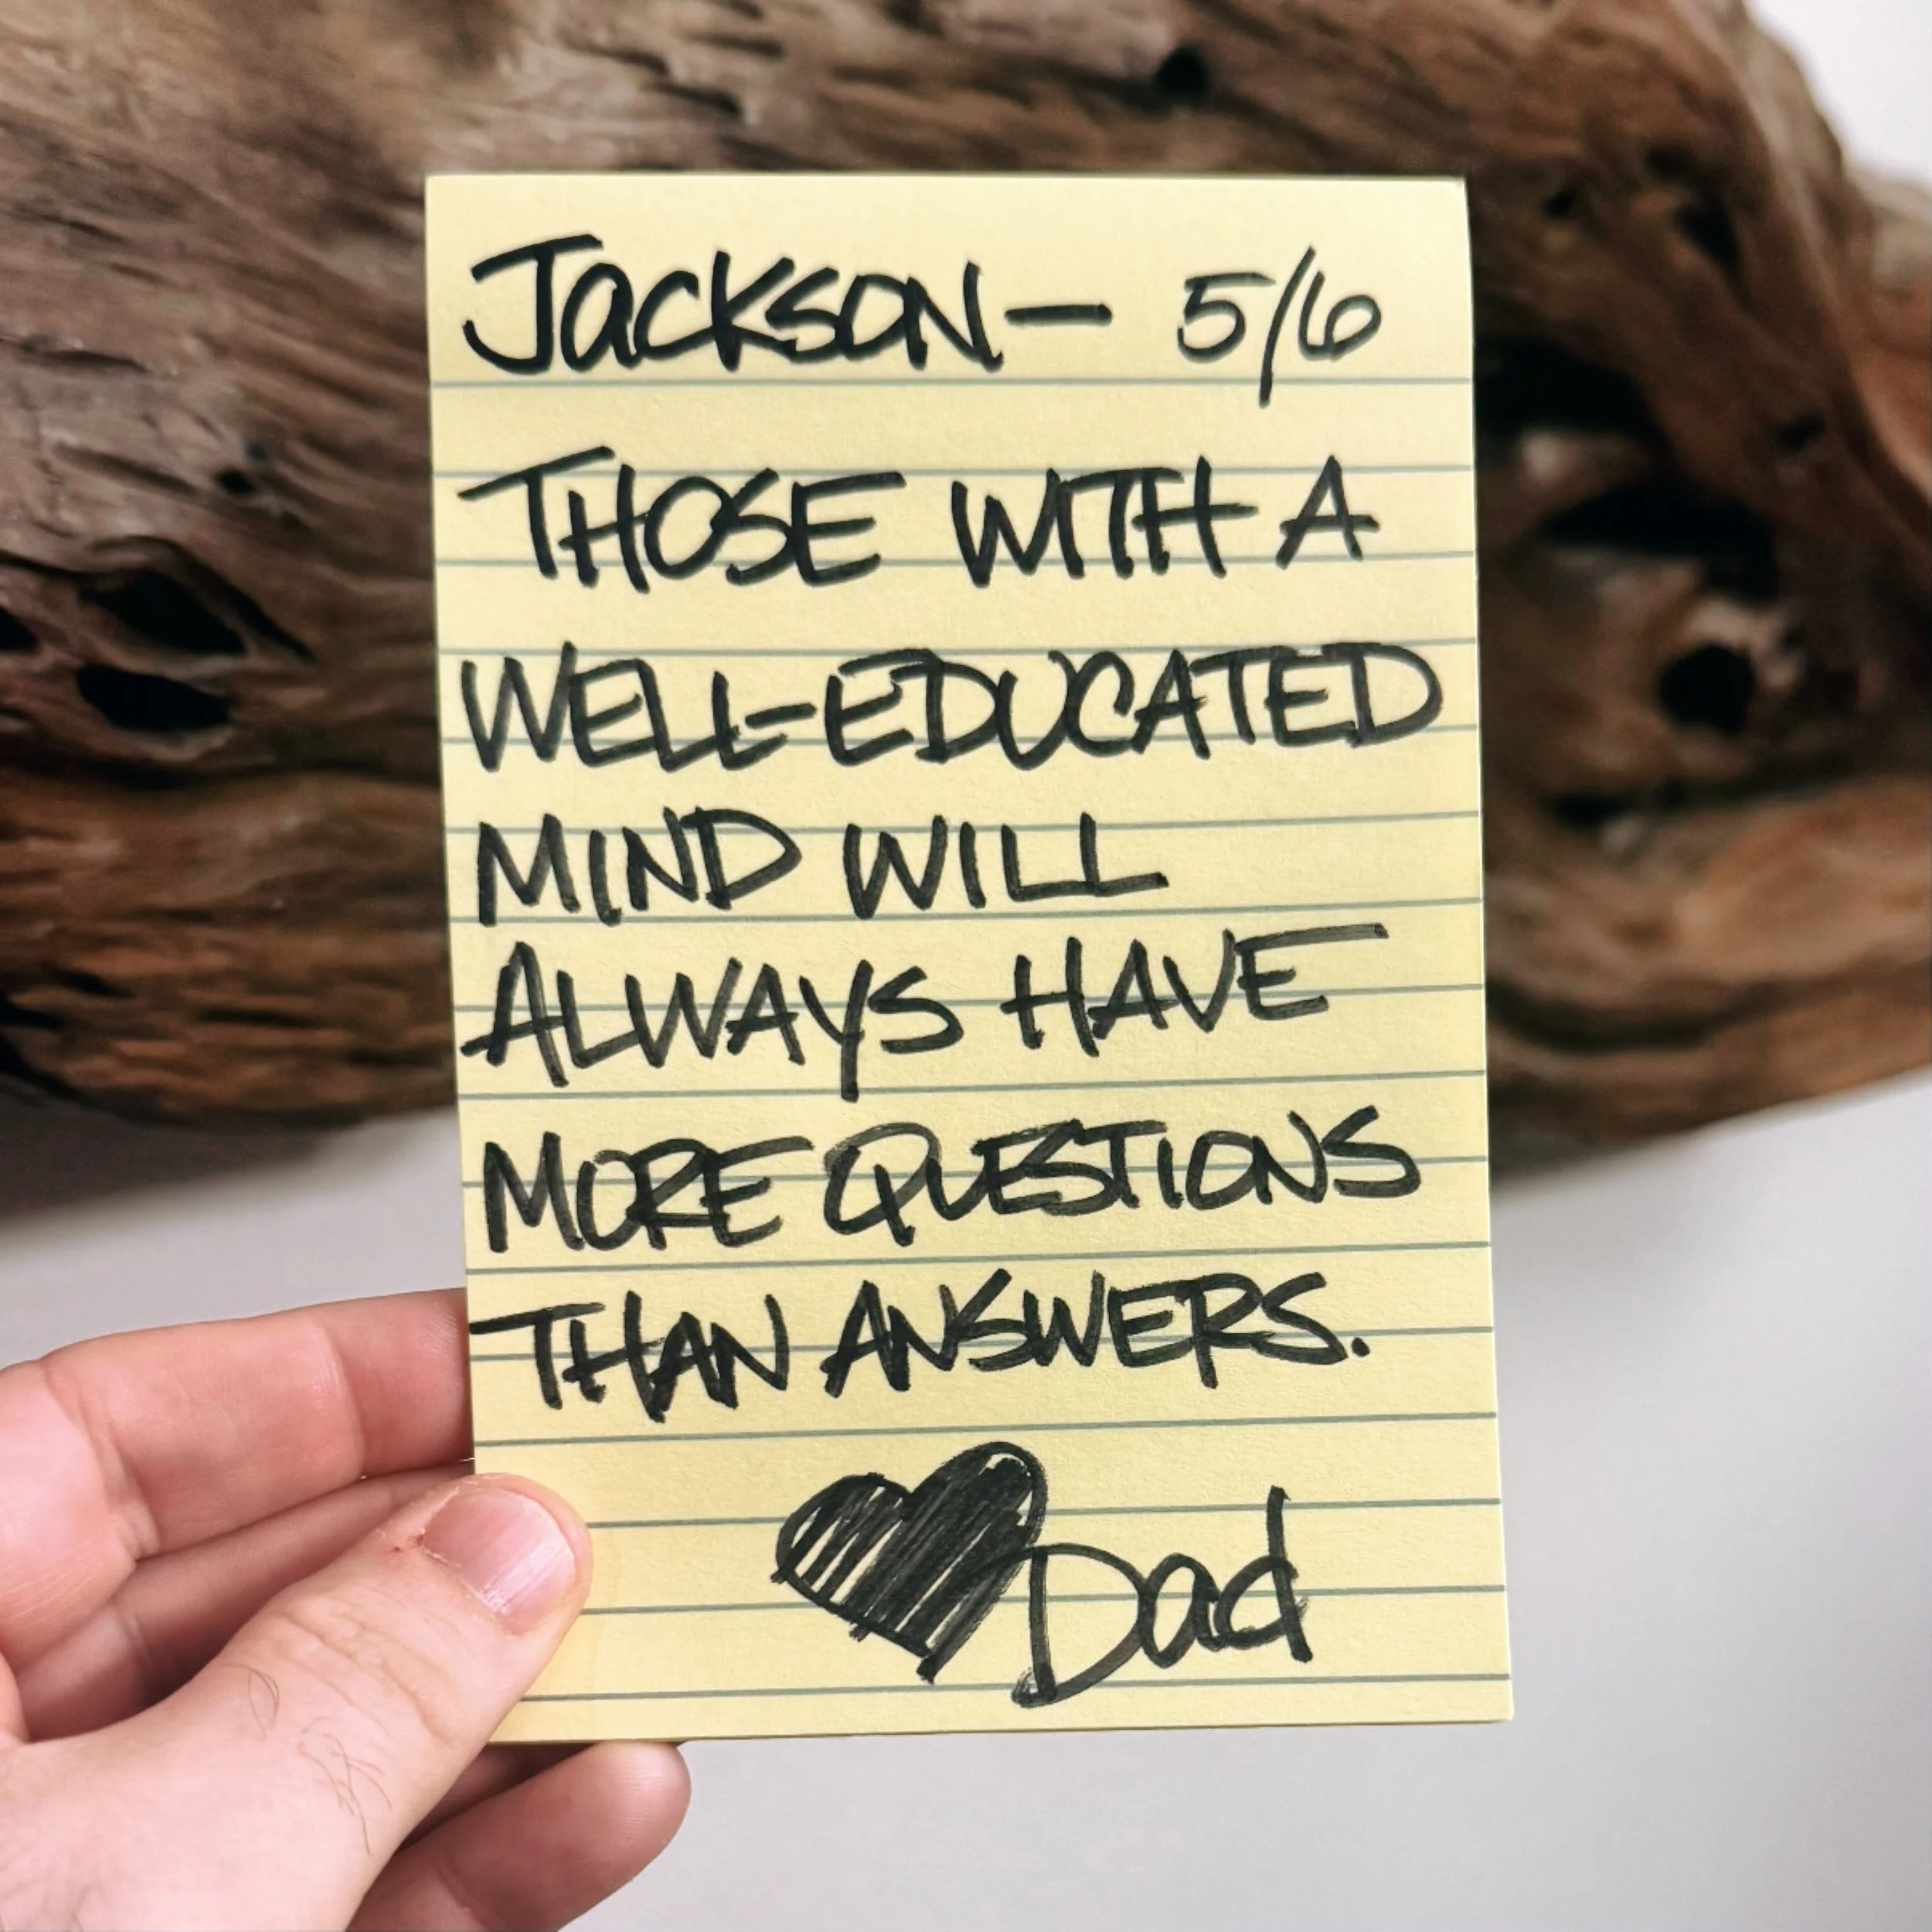 Jackson— 5/6
THOSE WITH A
WELL-EDUCATED
MIND WILL
ALWAYS HAVE
MORE QUESTIONS
THAN ANSWERS.
Dad